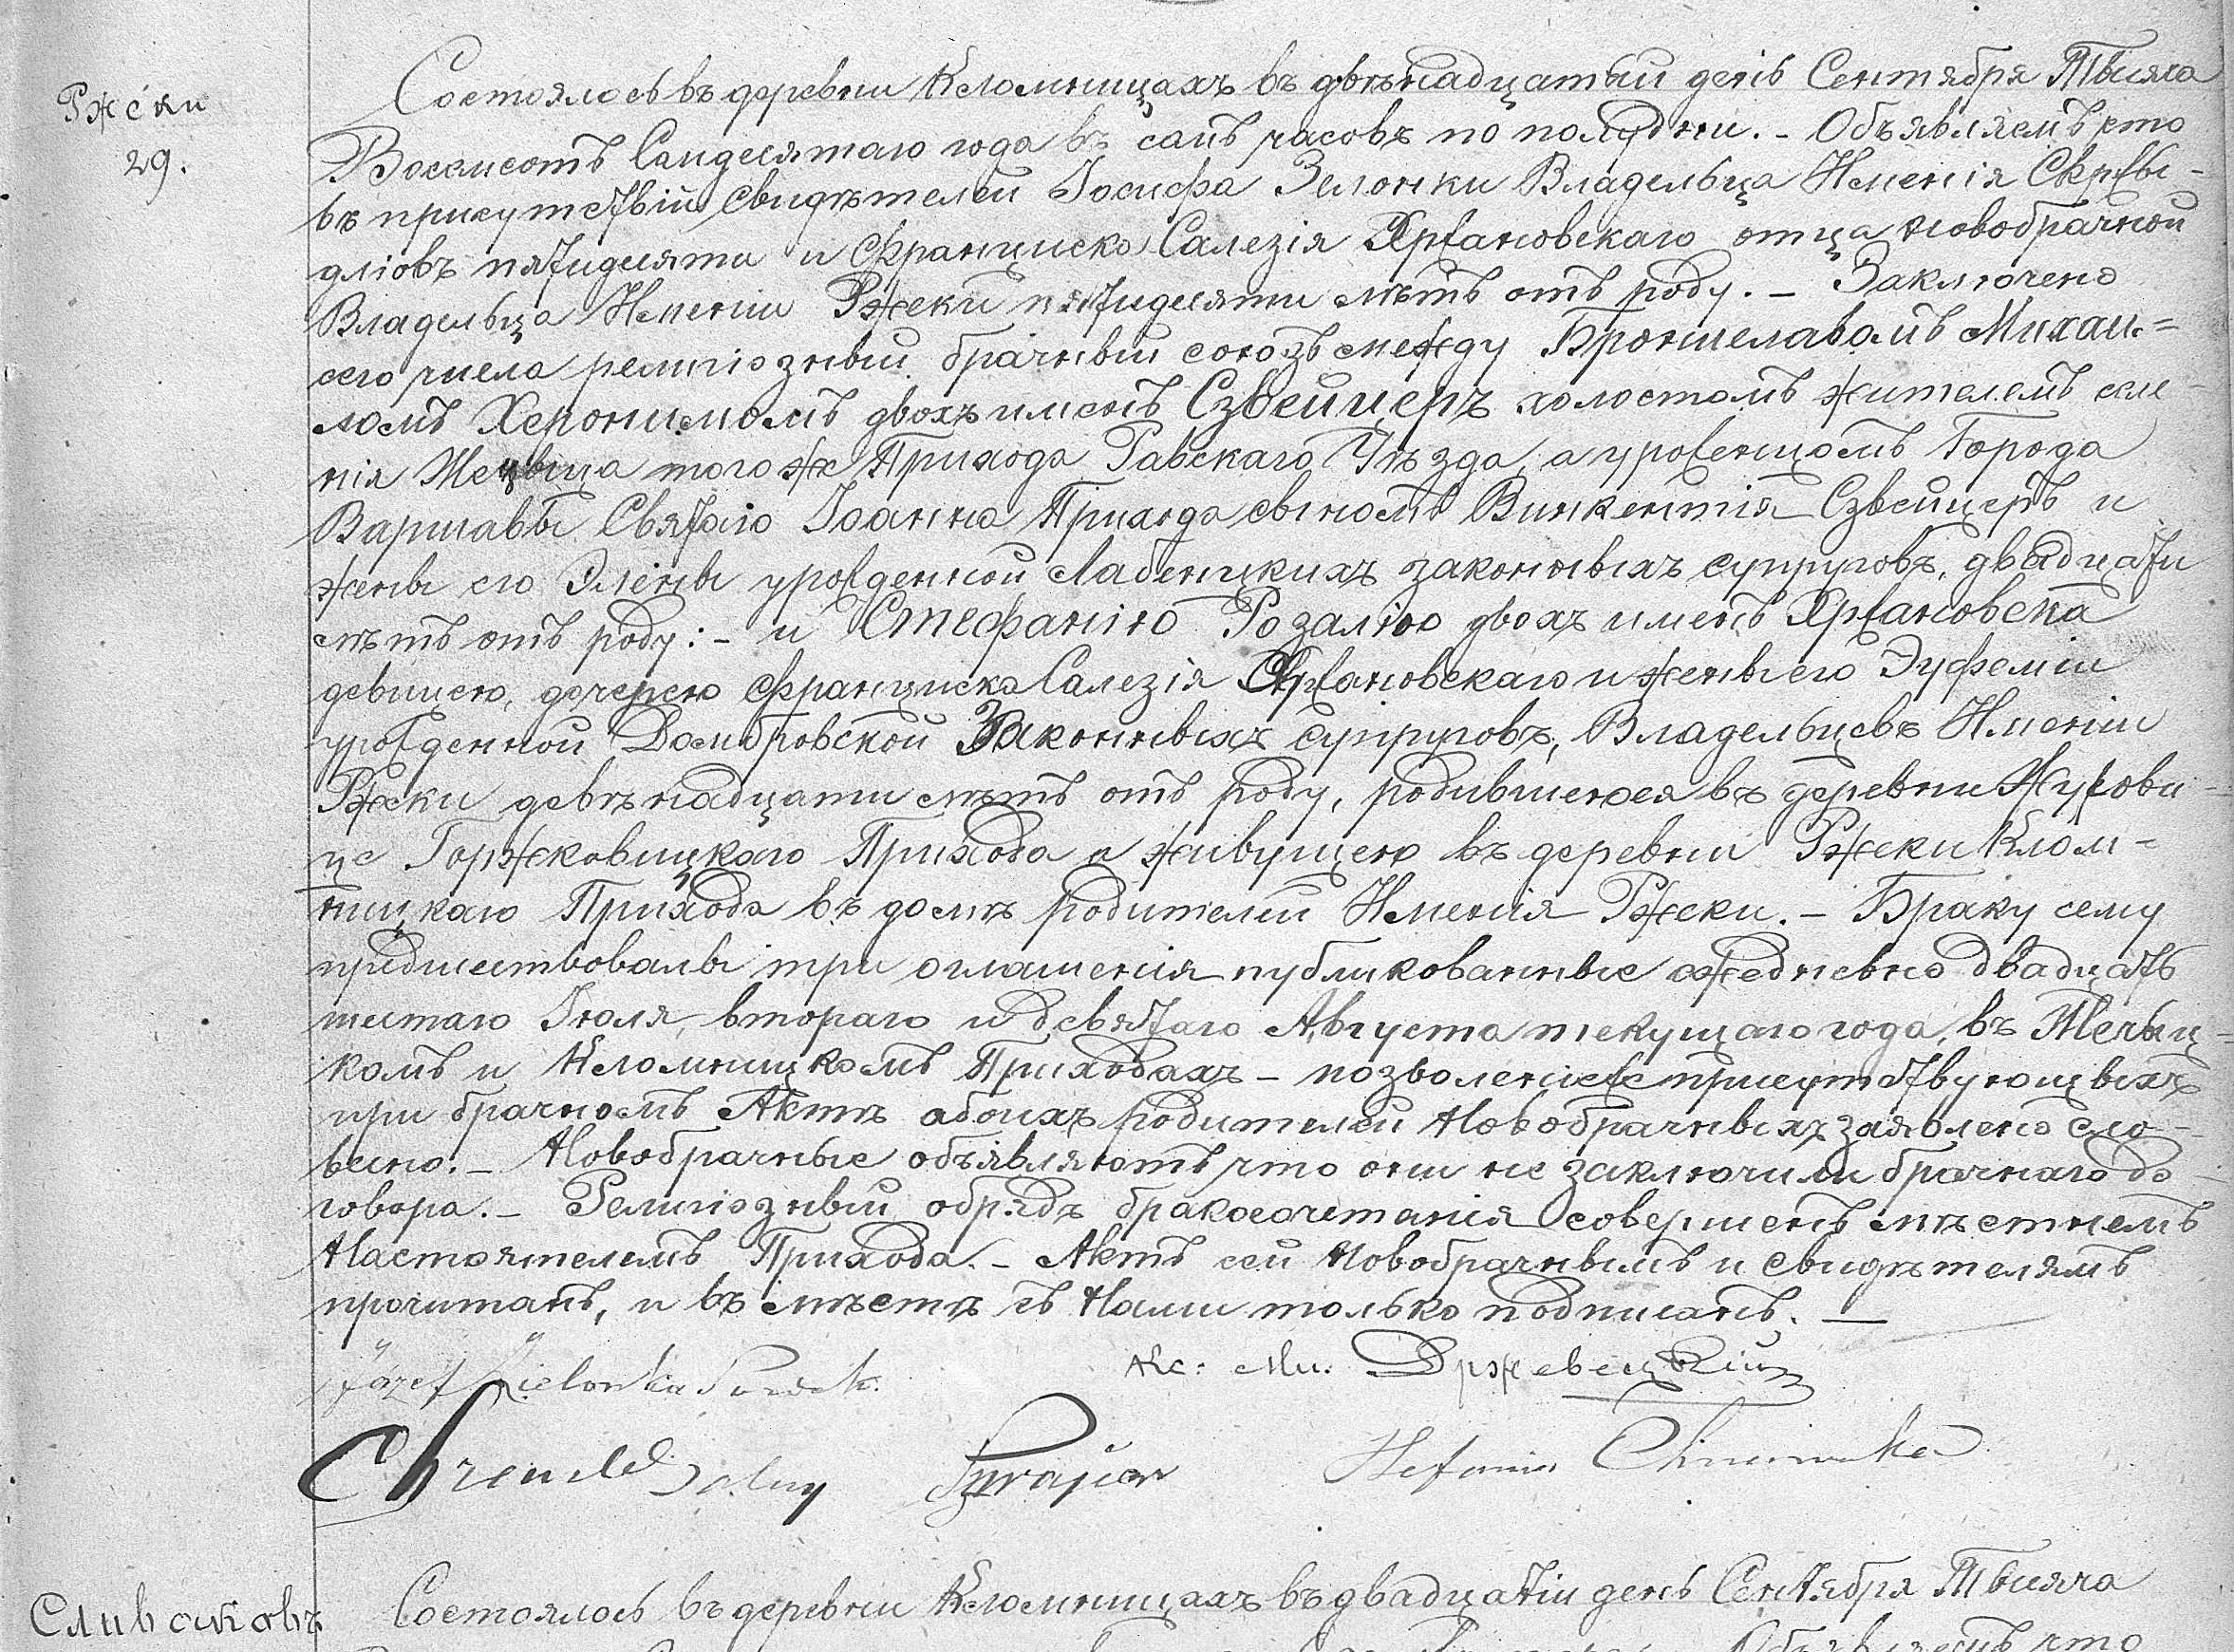 Ржеки
29.
Состоялось въ деревни Кломницахъ въ двѣнадцатый день Сентября Тысяча
Восемсотъ Семдесятаго года въ семь часовъ по полудни. - Объявляемъ что
въ присутствіи свидѣтелей Іосифа Зелонки Владельца Именія Скржы-
дловъ пятидесяти и Францишка Салезія Хржановскаго отца новобрачной
Владельца Именіи Ржеки пятидесяти лѣтъ отъ роду. - Заключено
сего числа религіозный брачный союзъ между Брониславомъ Михаи=
ломъ Херонимомъ двохъ именъ Сзвейцеръ холостомъ жителемъ селе
нія того же Прихода Равскаго Уѣзда, а уроженцомъ Города
Варшавы Святаго Іоанна Прихода сыномъ Винкентія Сзвейцеръ и
жены его Элены урожденной Лабенцкихъ законныхъ супруговъ, двадцати
лѣтъ отъ роду: - и Стефанію Розалію двохъ именъ Хржановска
девицею, дочерею Францишка Салезія Хржановскаго и жены его Эуфеміи
урожденной Домбровской Законныхъ супруговъ, Владельцевъ Именіи
Ржеки девѣнадцати лѣтъ отъ роду, родившеюся въ деревни Жужови-
це Горжковицкаго Прихода а живущею въ деревни Ржеки Клом-
ницкаго Прихода въ домѣ родителей Именія Ржеки. - Браку сему
предшествовалы три оглашенія публикованные двадцать
шестаго Іюля, втораго и девятаго Августа текущаго года, въ
комъ и Кломницкомъ Приходахъ - позволеніе же присутствующыхъ
при брачномъ Актѣ обоихъ родителей Новобрачныхъ заявлено сло-
весно. - Новобрачные объявляютъ что они не заключили брачнаго до-
говора. - Религіозный обрядъ бракосочетанія совершенъ мѣстнемъ
Настоятелемъ Прихода. - Актъ сей Новобрачнымъ и свидѣтелямъ
прочитанъ, и въ мѣстѣ съ Нами только подписанъ. —
Józef Zielonka
Кс: Ми: Држевецкій
Szwajcer
Stefania Chrzanowska
Сливаковъ
Состоялось въ деревни Кломницахъ въ двадцатый день Сентября Тысяча